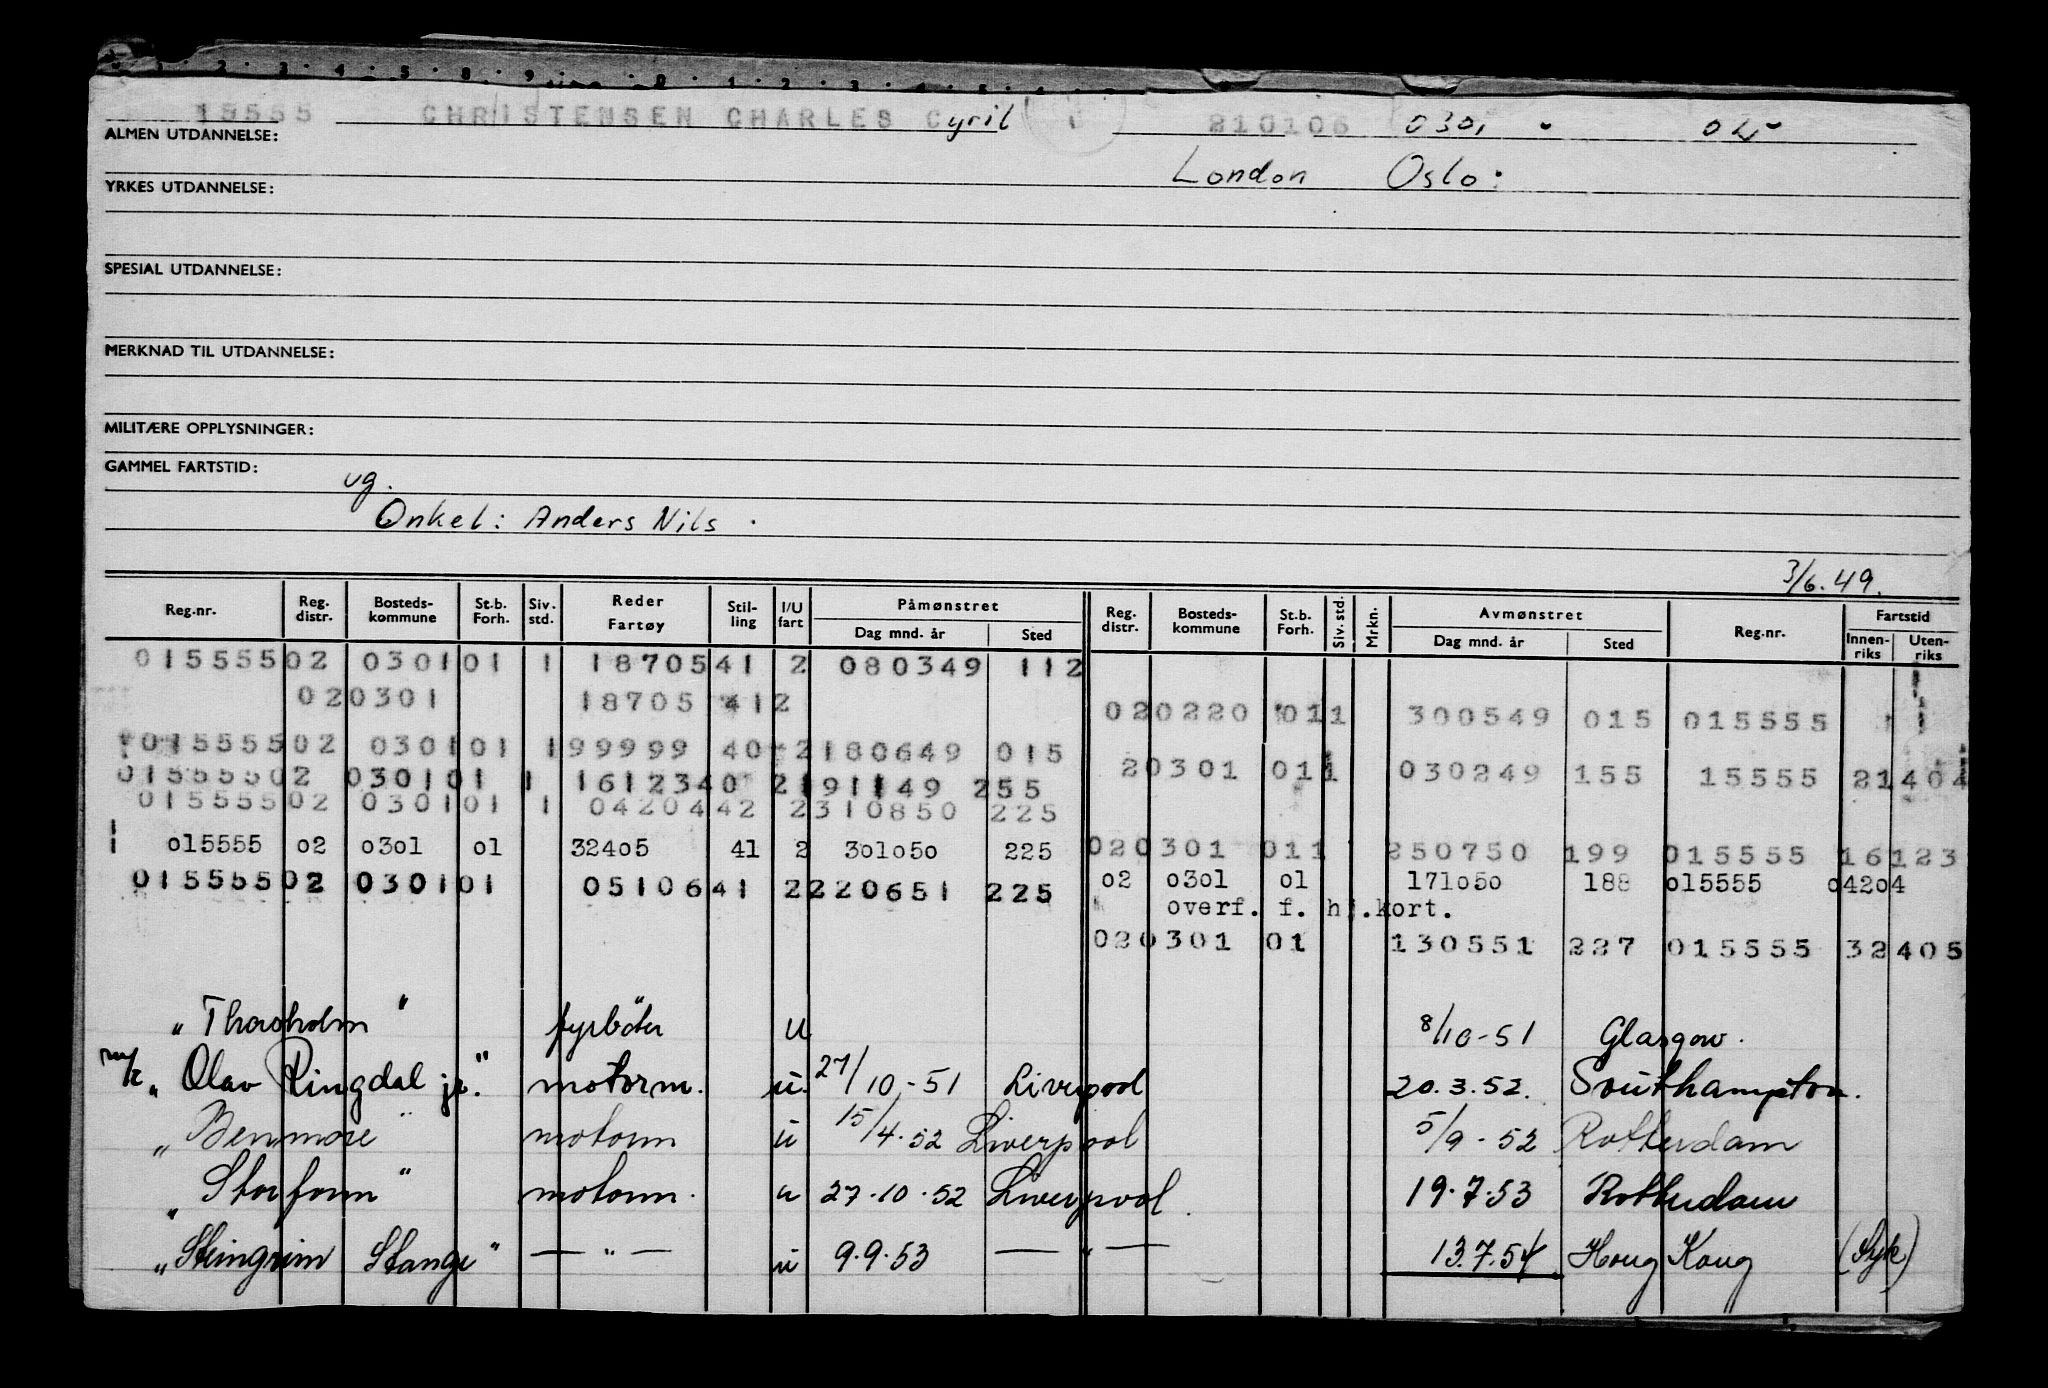 15555 CHRISTENSEN CHARLES Cyril 1 210106 0301 - 04-
ALMEN UTDANNELSE:
London Oslo:
YRKES UTDANNELSE:
SPESIAL UTDANNELSE:
MERKNAD TIL UTDANNELSE:
MILITÆRE OPPLYSNINGER:
GAMMEL FARTSTID:
ug.
Onkel: Anders Nils.
3/6.49.
Reg.nr. Reg. distr. Bosteds-kommune St.b. Forh. Siv. std. Reder Fartøy Stil-ling I/U fart Påmønstret Dag mnd. år Sted Reg. distr. Bosteds-kommune St.b. Forh. Siv. std. Mrkn. Avmønstret Dag mnd. år Sted Reg.nr. Fartstid Innen-riks Uten-riks
015555 02 0301 01 1 18705 41 2 080349 112
02 0301 18705 41 2 02 0220 01 1 300549 015 015555
015555 02 0301 01 1 99999 40 2 180649 015
015555 02 0301 01 1 16123 40 2 191149 255 2 0301 01 1 030249 155 15555 21404
015555 02 0301 01 1 04204 42 2 310850 225
015555 02 0301 01 32405 41 2 301050 225 02 0301 01 1 250750 199 015555 16123
015555 02 0301 01 05106 41 2 220651 225 02 0301 01 171050 188 015555 04204
overf. f. hj.kort.
02 0301 01 130551 227 015555 32405
"Thorsholm" fyrbøter u 8/10-51 Glasgow.
m/t "Olav Ringdal jr." motorm. u. 27/10-51 Liverpool 20.3.52. Southampton.
"Benmore" motorm u 15/4.52 Liverpool 5/9-52 Rotterdam
"Storfonn" motorm. u 27.10.52 Liverpool. 19.7.53 Rotterdam
"Steingrim Stange" — " — u 9.9.53 — " — 13.7.54 Hong Kong (Syk)